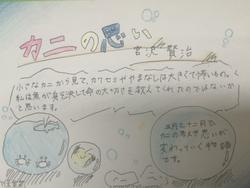 カニの思い
宮沢 賢治
小さなカニから見て、カワセミややまなしは大きくて怖いもの。
私は魚が身を決して命の大切さを教えてくれたのではないか
と思います。
五月と十二月で
カニの考え方や思いが
変わっていく物語
です。